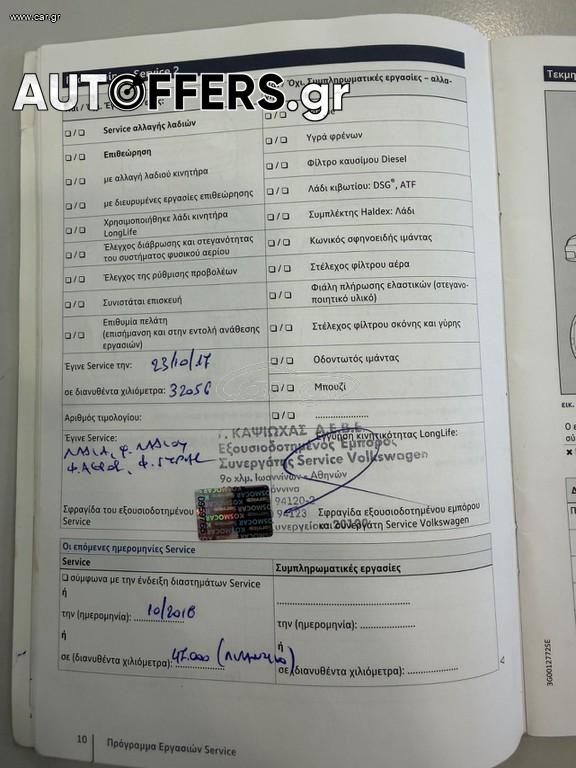 www.car.gr
AUTOFFERS.gr
Service 2
Όχι. Συμπληρωματικές εργασίες – αλλα-
Τεκμη
☐ / ☐ Service αλλαγής λαδιών
☐ / ☐ Επιθεώρηση
☐ / ☐ με αλλαγή λαδιού κινητήρα
☐ / ☐ με διευρυμένες εργασίες επιθεώρησης
☐ / ☐ Χρησιμοποιήθηκε λάδι κινητήρα
LongLife
☐ / ☐ Έλεγχος διάβρωσης και στεγανότητας
του συστήματος φυσικού αερίου
☐ / ☐ Έλεγχος της ρύθμισης προβολέων
☐ / ☐ Συνιστάται επισκευή
☐ / ☐ Επιθυμία πελάτη
(επισήμανση και στην εντολή ανάθεσης
εργασιών)
☐ / ☐ Υγρά φρένων
☐ / ☐ Φίλτρο καυσίμου Diesel
☐ / ☐ Λάδι κιβωτίου: DSG®, ATF
☐ / ☐ Συμπλέκτης Haldex: Λάδι
☐ / ☐ Κωνικός σφηνοειδής ιμάντας
☐ / ☐ Στέλεχος φίλτρου αέρα
☐ / ☐ Φιάλη πλήρωσης ελαστικών (στεγανο-
ποιητικό υλικό)
☐ / ☐ Στέλεχος φίλτρου σκόνης και γύρης
☐ / ☐ Οδοντωτός ιμάντας
☐ / ☐ Μπουζί
☐ / ☐ ....................
Έγινε Service την: 23/10/17
σε διανυθέντα χιλιόμετρα: 32056
Αριθμός τιμολογίου:
Έγινε Service:
Εγγύηση κινητικότητας LongLife:
Γ. ΚΑΨΙΩΧΑΣ Α.Ε.Β.Ε.
Εξουσιοδοτημένος Έμπορος
Συνεργάτης Service Volkswagen
9ο χλμ. Ιωαννίνων - Αθηνών
94120-2
94123
Συνεργείου 20100
KOSMOCAR
Σφραγίδα του εξουσιοδοτημένου
Service
Σφραγίδα εξουσιοδοτημένου εμπόρου
και Συνεργάτη Service Volkswagen
Οι επόμενες ημερομηνίες Service
Service
Συμπληρωματικές εργασίες
☐ σύμφωνα με την ένδειξη διαστημάτων Service
ή
την (ημερομηνία): 10/2018
ή
σε (διανυθέντα χιλιόμετρα): 47.000
την (ημερομηνία): ....................
ή
σε (διανυθέντα χιλιόμετρα): ..................
10
Πρόγραμμα Εργασιών Service
3G0012772SE
εικ.
Ο ε